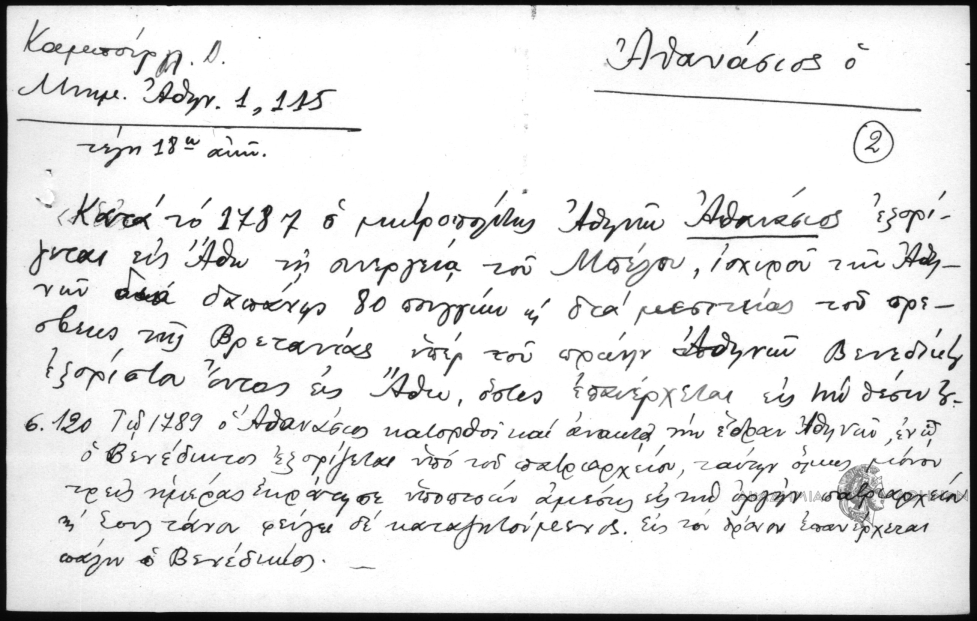 Καμπούρογλ. Δ.
Μνημ. Ἀθην. 1, 115
τέλη 18ου αἰῶ.
Ἀθανάσιος ὁ
2
Κατά τό 1787 ὁ μητροπολίτης Ἀθηνῶν Ἀθανάσιος ἐξορί-
ζεται εἰς Ἄθω τῇ συνεργείᾳ τοῦ Μπέλου, ἰσχυροῦ τῶν Ἀθη-
νῶν δαπάνης 80 πουγγίων ϗ διά μεσιτείας τοῦ πρέ-
σβεως τῆς Βρετανίας ὑπέρ τοῦ πρώην Ἀθηνῶν Βενεδίκτου
ἐξορίστου ὄντος εἰς Ἄθω, ὅστις ἐπανέρχεται εἰς τήν θέσιν
σ. 120 Τῷ 1789 ὁ Ἀθανάσιος κατορθοῖ καί ἀνακτᾷ τήν ἕδραν Ἀθηνῶν, ἐνῷ
ὁ Βενέδικτος ἐξορίζεται ὑπό τοῦ πατριαρχείου, ταύτην ὅμως μόνον
τρεῖς ἡμέρας ἐκράτησε ὑποπεσών ἀμέσως εἰς τήν ὀργήν πατριαρχείου
φεύγει δέ καταζητούμενος. εἰς τόν θρόνον ἐπανέρχεται
πάλιν ὁ Βενέδικτος.